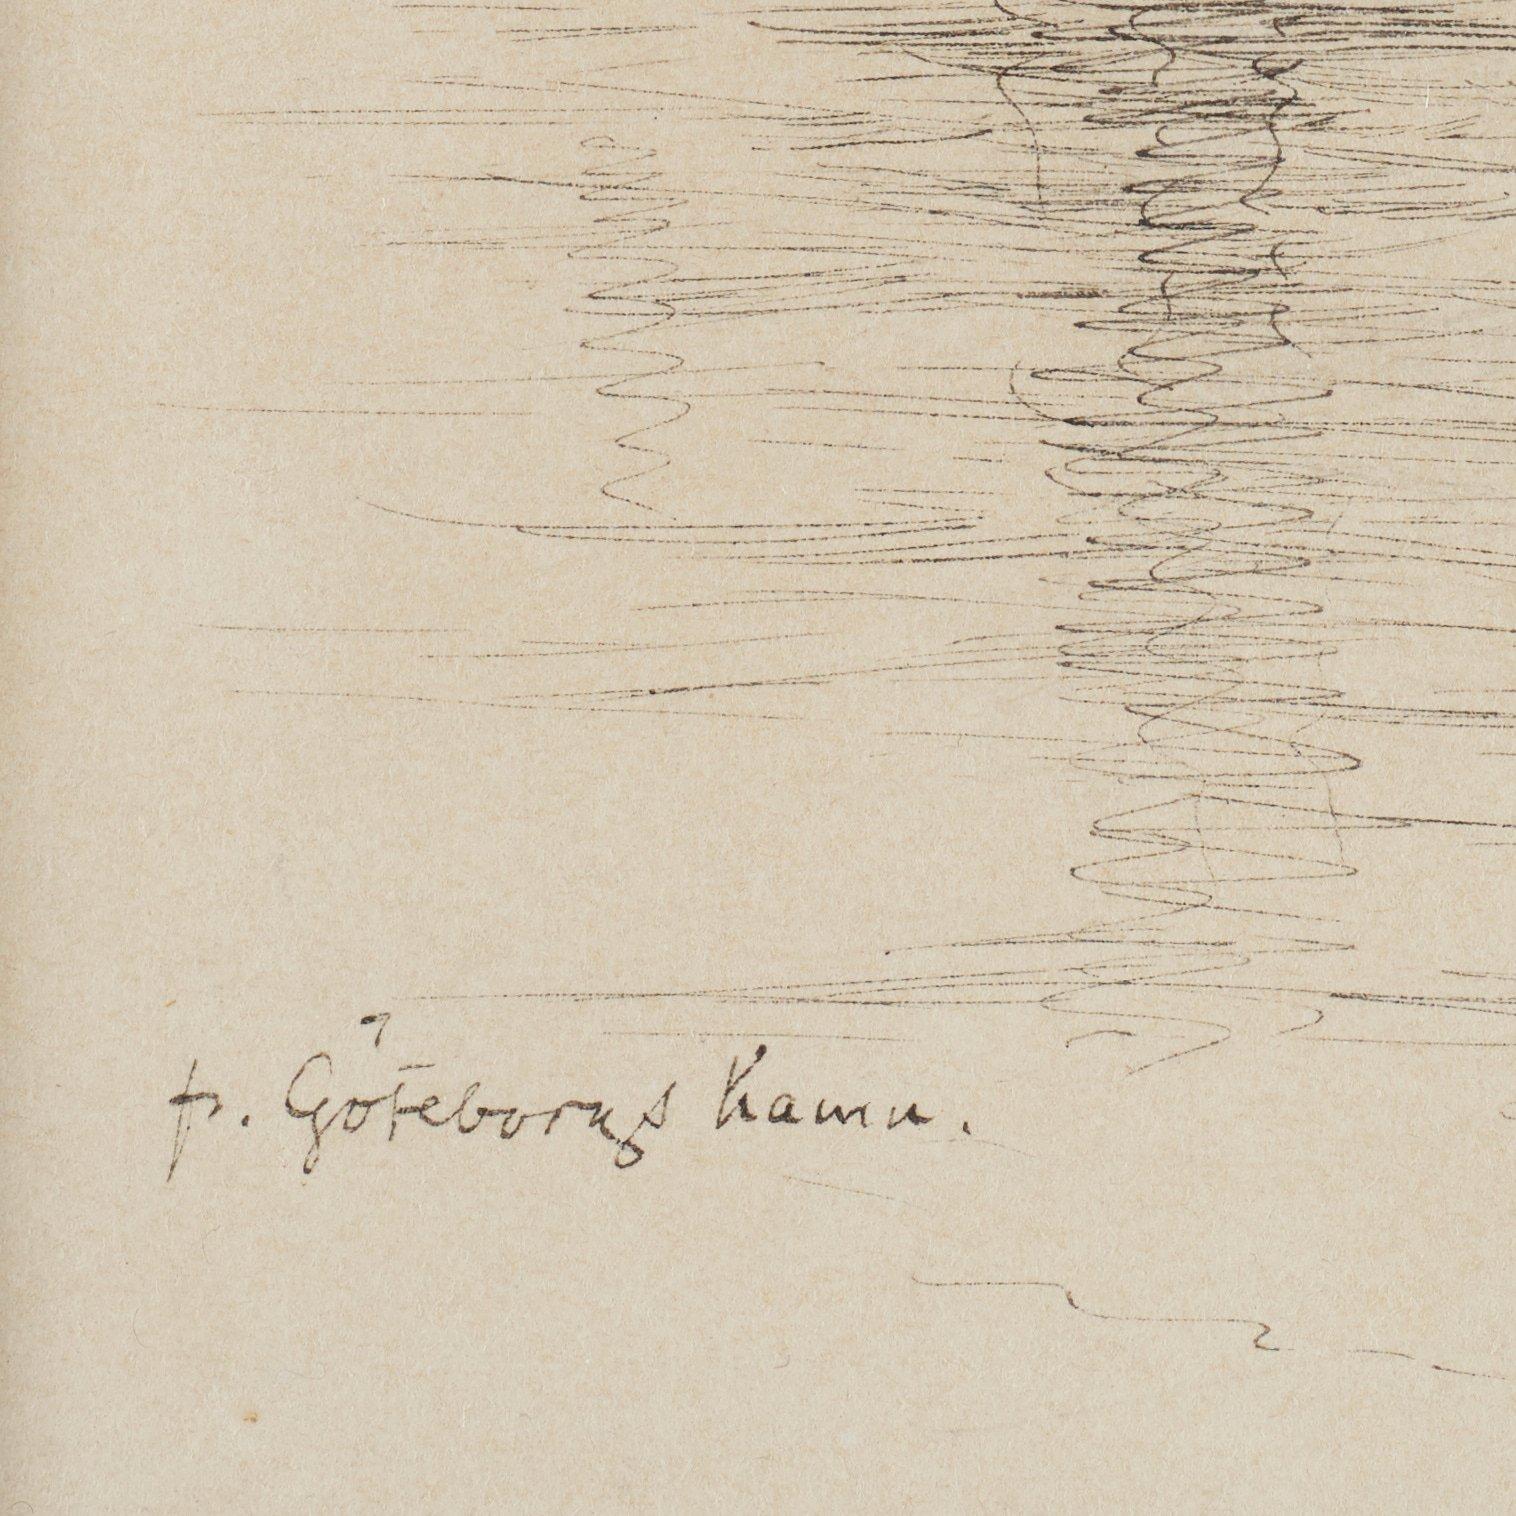 fr. Göteborgs hamn.